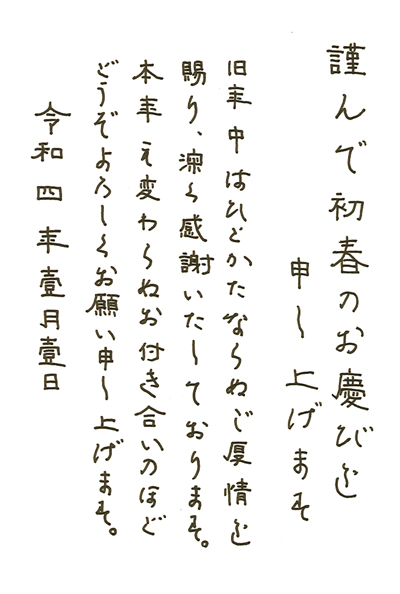 謹んで初春のお慶びを
申し上げます
旧年中はひとかたならぬご厚情を
賜り、深く感謝いたしております。
本年も変わらぬお付き合いのほど
どうぞよろしくお願い申し上げます。
令和四年壹月壹日